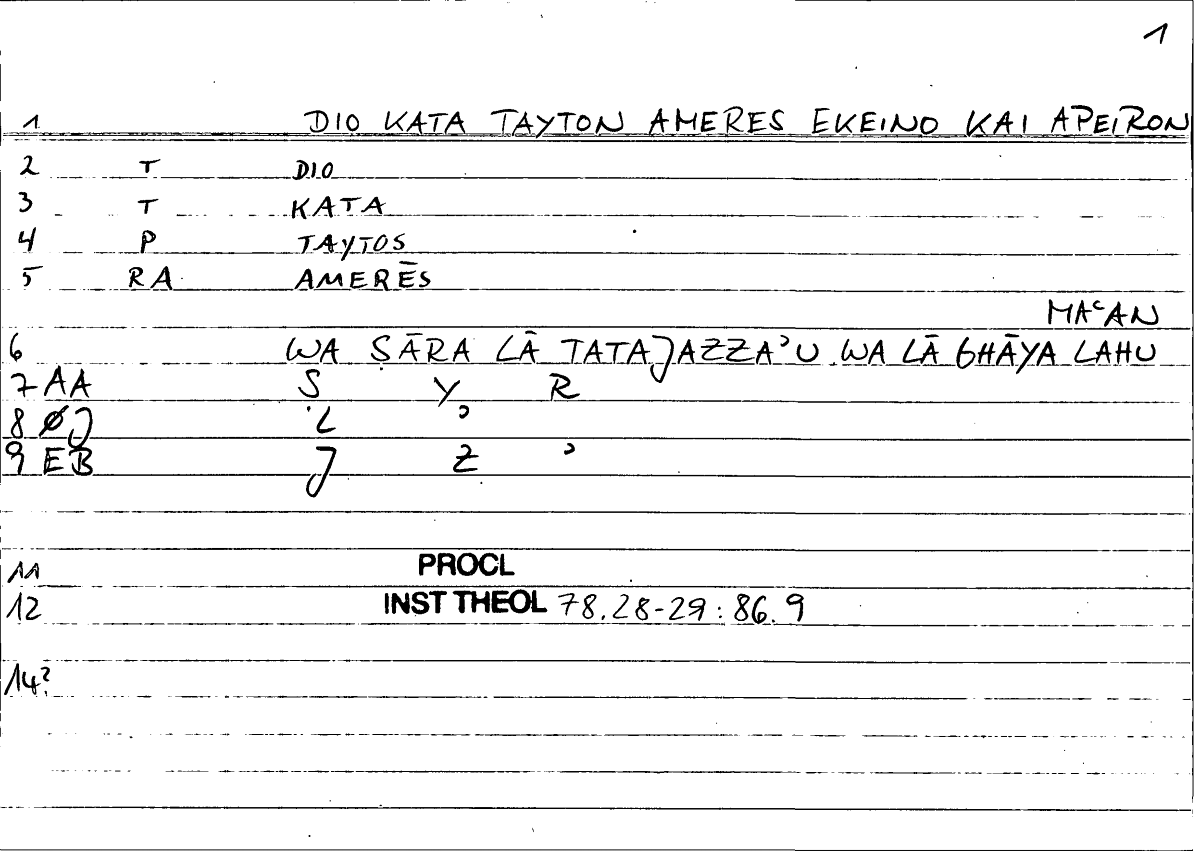 1
1 DIO KATA TAYTON AMERES EKEINO KAI APEIRON
2 T DIO
3 T KATA
4 P TAYTOS
5 RA AMERĒS
MAʿAN
6 WA ṢĀRA LĀ TATAJAZZAʾU WA LĀ GHĀYA LAHU
7 AA Ṣ Y R
8 ØJ L ʾ
9 EB J Z ʾ
11 PROCL
12 INST THEOL 78.28-29:86.9
14?